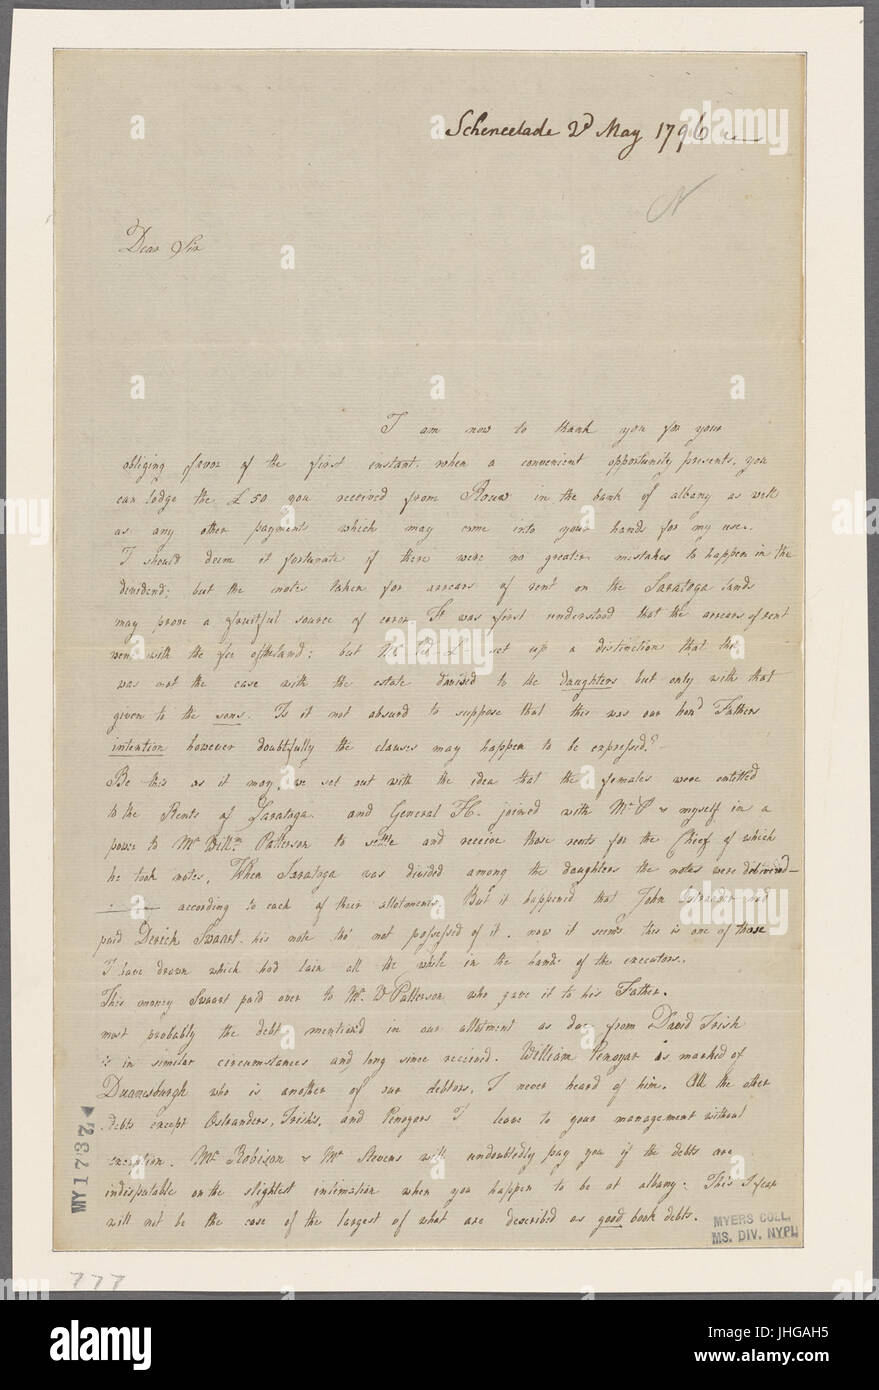 Schenectade 2d May 1796
N
Dear Sir
I am now to thank you for your
obliging favor of the first instant. when a convenient opportunity presents, you
can lodge the £ 50 you received from Rouw in the bank of albany as well
as any other payments which may come into your hands for my use.
I should deem it fortunate if there were no greater mistakes to happen in the
dividend; but the notes taken for arrears of rent on the Saratoga lands
may prove a fruitful source of error. It was first understood that the arrears of rent
went with the fee of the land: but set up a distinction that the
was not the case with the estate devised to the daughters but only with that
given to the sons. Is it not absurd to suppose that this was our hond Fathers
intention however doubtfully the clauses may happen to be expressed?
Be this as it may, we set out with the idea that the females were entitled
to the Rents of Saratoga. and General joined with Mr P & myself in a
power to Mr Willm Patterson to settle and receive those rents for the Chief of which
he took notes. When Saratoga was divided among the daughters the notes were delivered
according to each of their allotments. But it happened that John Ostrander had
paid Derick Swaart his note tho' not possessed of it. now it seems this is one of those
I have drawn which had lain all the while in the hands of the executors.
This money Swaart paid over to Mr. Patterson who gave it to his Father.
most probably the debt mention'd in our allotment as due from David Irish
is in similar circumstances and long since received. William Penoyar is marked of
Duanesburgh who is another of our debtors, I never heard of him. All the other
debts except Ostranders, Irish's, and Penoyars I leave to your management without
exception. Mr Robison & Mr Stevens will undoubtedly pay you if the debts are
indisputable on the slightest intimation when you happen to be at albany. This I fear
will not be the case of the largest of what are described as good book debts.
MY 1737
MYERS COLL.
MS. DIV. NYPL
777
alamy
Image ID: JHGAH5
www.alamy.com